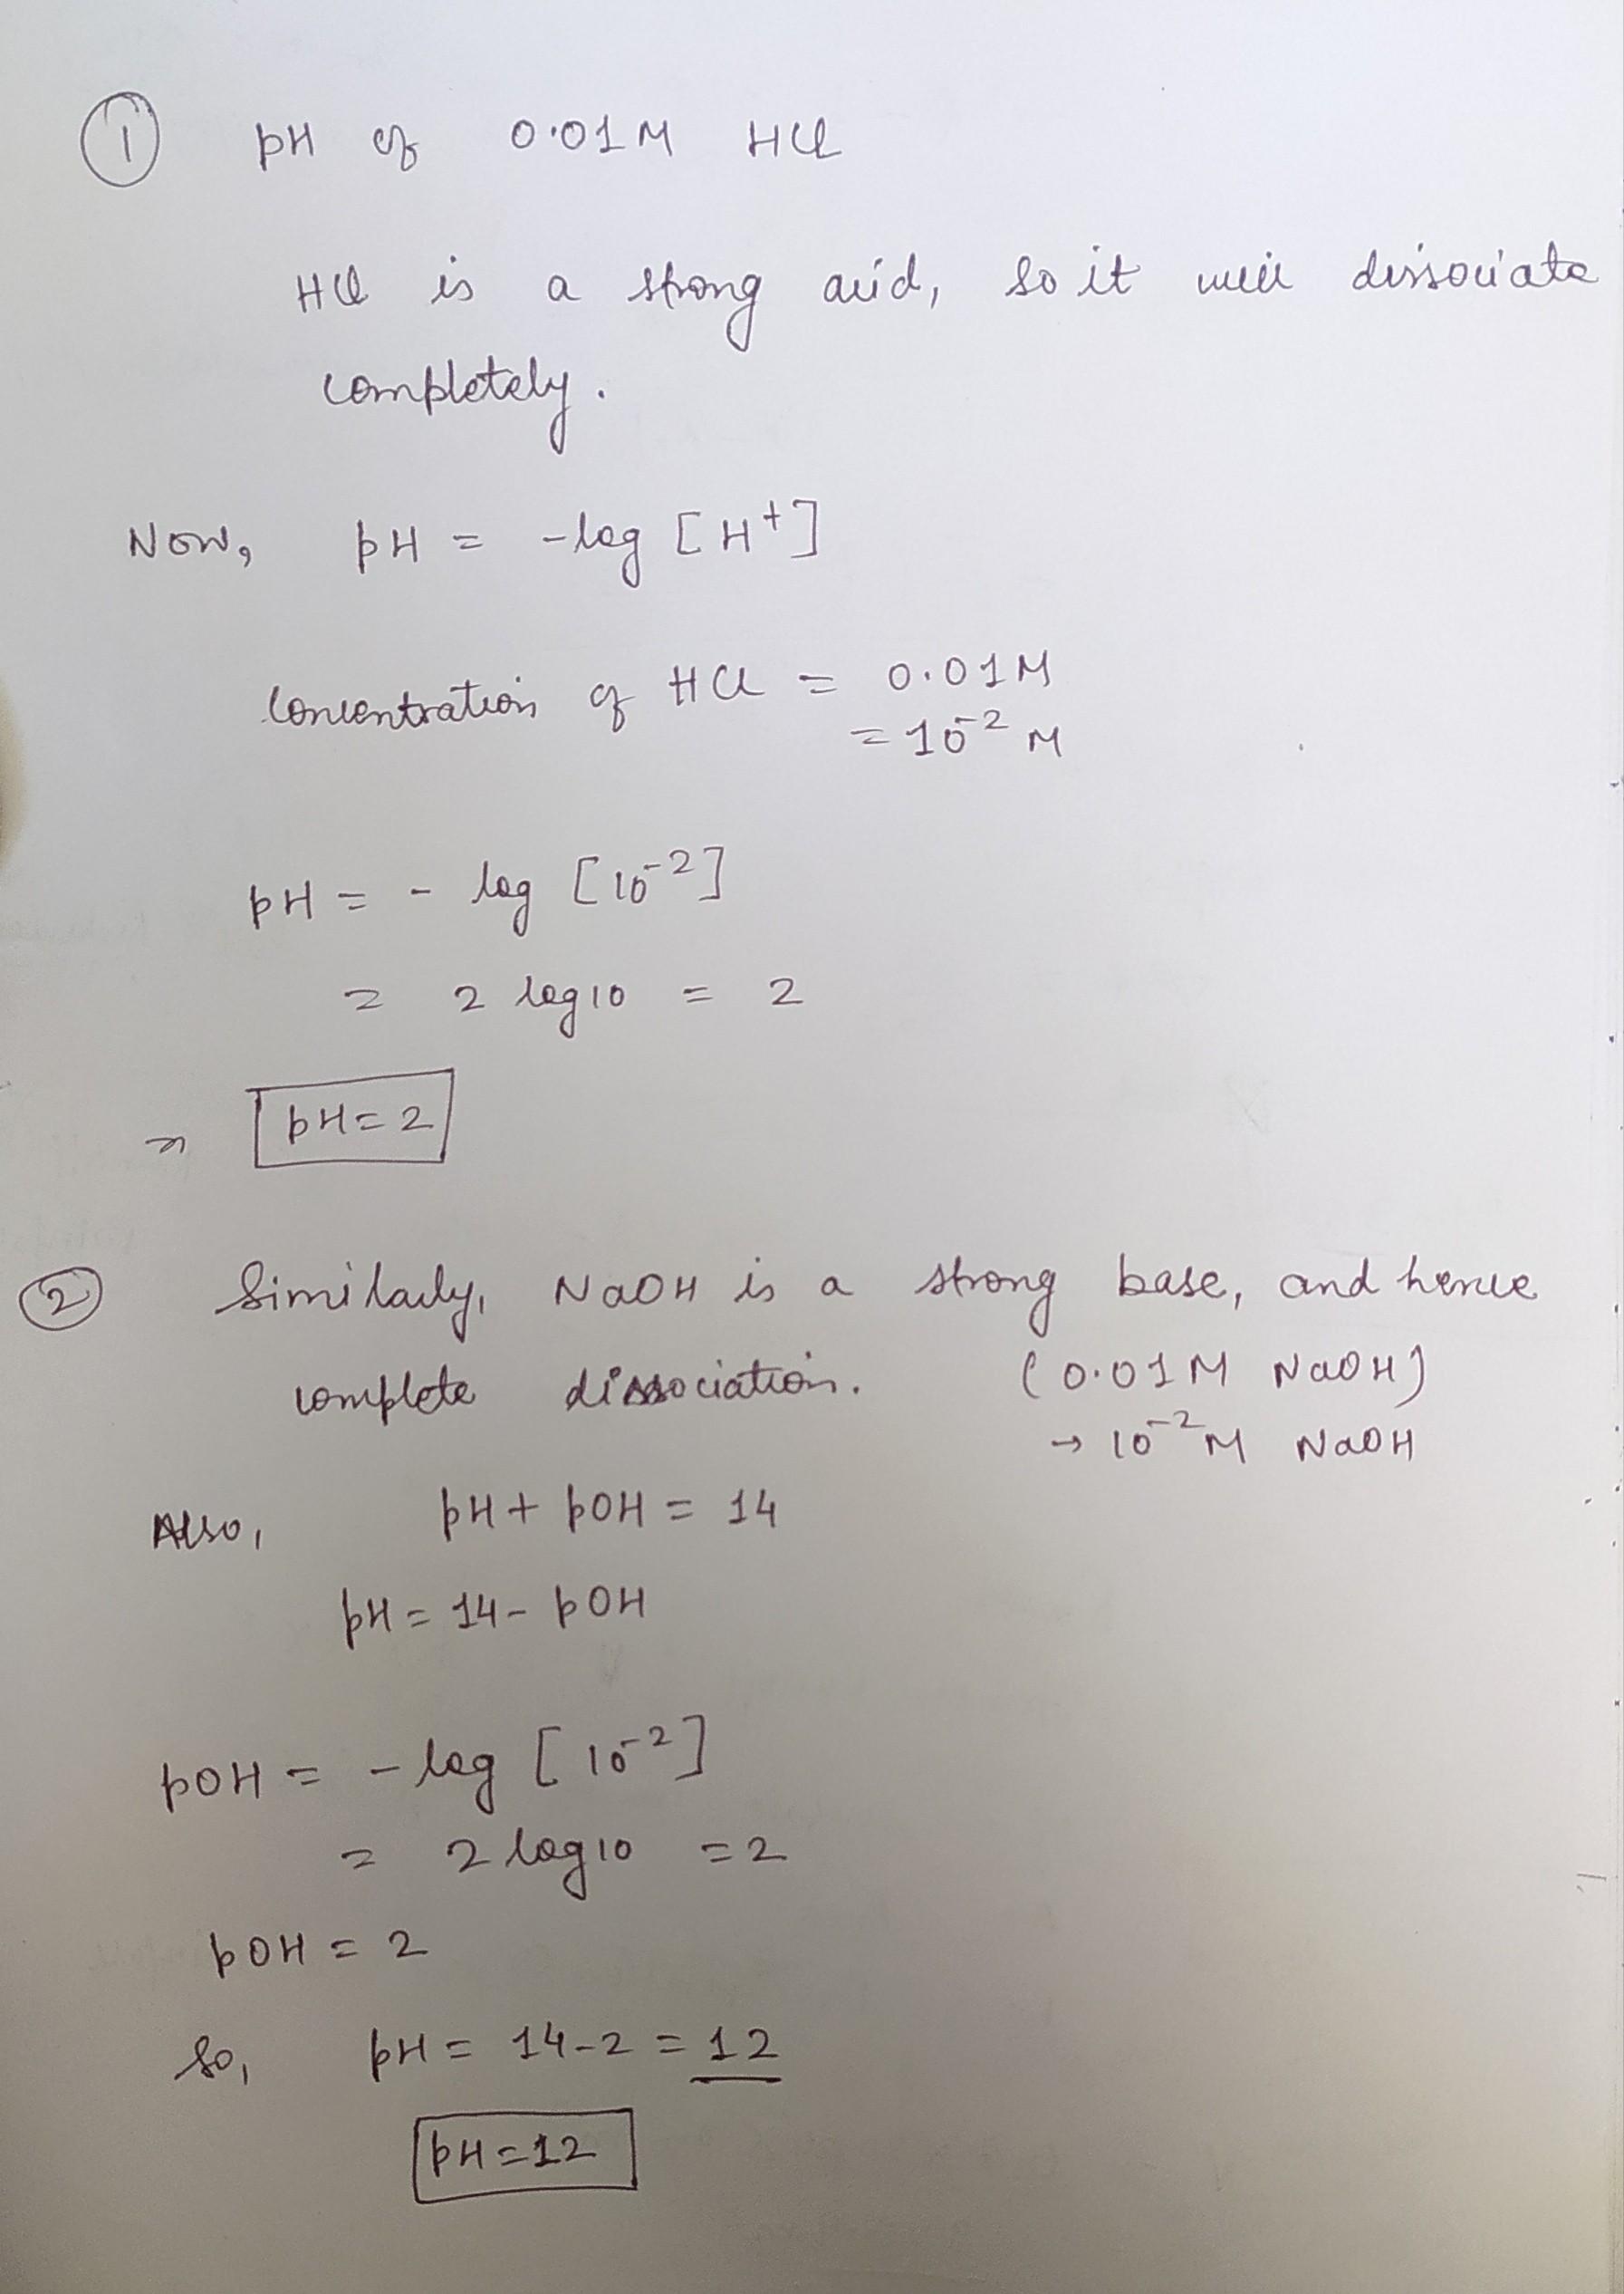 1 pH of 0.01M HCl
HCl is a strong acid, so it will dissociate
completely.
Now, pH = -log [H⁺]
Concentration of HCl = 0.01M
= 10⁻² M
pH = - log [10⁻²]
= 2 log10 = 2
⇒ pH = 2
2 Similarly, NaOH is a strong base, and hence
complete dissociation. (0.01M NaOH)
→ 10⁻² M NaOH
Also, pH + pOH = 14
pH = 14 - pOH
pOH = - log [10⁻²]
= 2 log10 = 2
pOH = 2
So, pH = 14-2 = 12
pH = 12